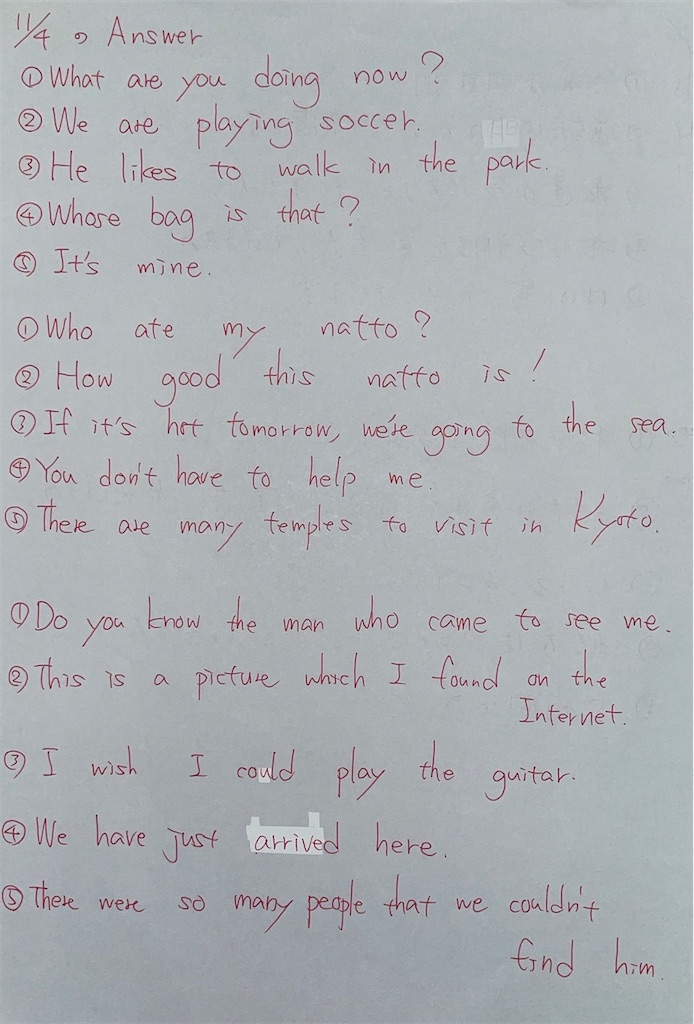 11/4 の Answer
① What are you doing now?
② We are playing soccer.
③ He likes to walk in the park.
④ Whose bag is that?
⑤ It's mine.
① Who ate my natto?
② How good this natto is!
③ If it's hot tomorrow, we're going to the sea.
④ You don't have to help me.
⑤ There are many temples to visit in Kyoto.
① Do you know the man who came to see me.
② This is a picture which I found on the
Internet.
③ I wish I could play the guitar.
④ We have just arrived here.
⑤ There were so many people that we couldn't
find him.